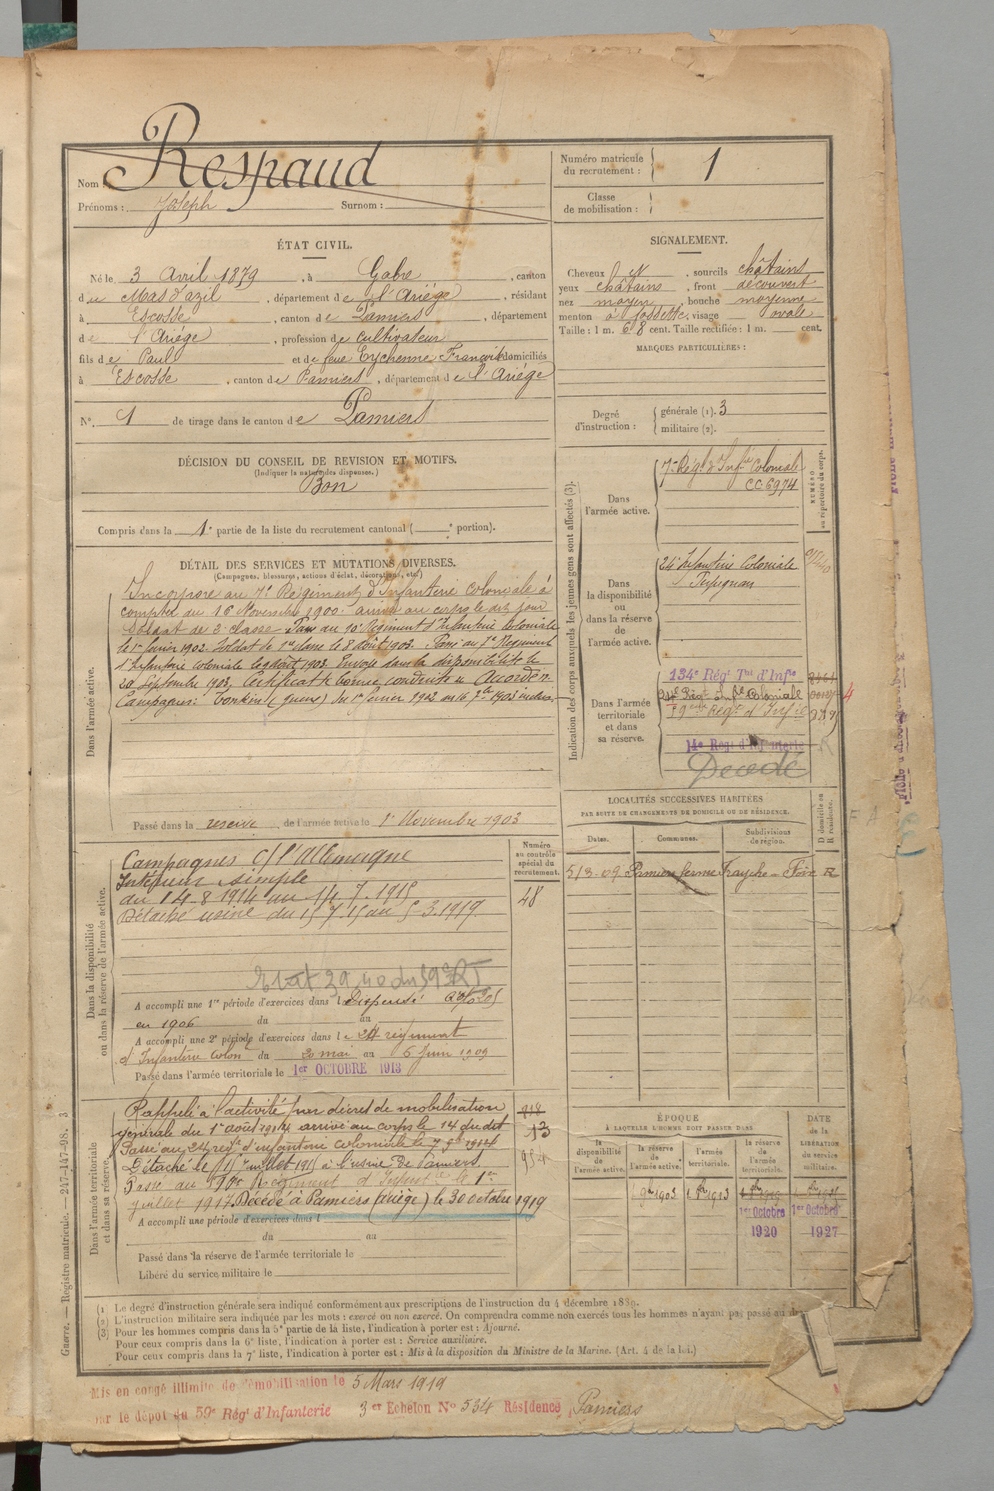 Nom : Respaud
Prénoms : Joseph Surnom :
Numéro matricule du recrutement : 1
Classe de mobilisation :
ÉTAT CIVIL.
Né le 3 Avril 1879, à Gabre, canton
de Mas d'azil, département de l'Ariège, résidant
à Escosse, canton de Pamiers, département
de l'Ariège, profession de cultivateur
fils de Paul et de feue Eychenne domiciliés
à Escosse, canton de Pamiers, département de l'Ariège
N° 1 de tirage dans le canton de Pamiers
SIGNALEMENT.
Cheveux et, sourcils châtains
yeux châtains, front découvert
nez moyen, bouche moyenne
menton à fossette, visage ovale
Taille : 1 m. 68 cent. Taille rectifiée : 1 m. cent.
MARQUES PARTICULIÈRES :
Degré d'instruction : générale (1). 3
militaire (2).
DÉCISION DU CONSEIL DE REVISION ET MOTIFS.
(Indiquer la nature des dispenses.)
Bon
Compris dans la 1e partie de la liste du recrutement cantonal ( e portion).
DÉTAIL DES SERVICES ET MUTATIONS DIVERSES.
(Campagnes, blessures, actions d'éclat, décorations, etc.)
Dans l'armée active.
Incorporé au 7e Régiment d'Infanterie coloniale à
compter du 16 Novembre 1900. arrivé au corps le dit jour
Soldat de 2e classe. Passé au 10e Régiment d'Infanterie Coloniale
le 1er février 1902. Soldat de 1re classe le 8 août 1903. Passé au 7e Régiment
d'Infanterie coloniale le août 1903. Envoyé dans la disponibilité le
20 Septembre 1903. Certificat de bonne conduite "Accordé".
Campagnes : Tonkin (guerre) du 1er février 1902 au 16 7bre 1903 inclus.
Passé dans la réserve de l'armée active le 1er Novembre 1903
Indication des corps auxquels les jeunes gens sont affectés (3).
NUMÉRO au répertoire du corps.
Dans l'armée active.
7e Régt d'Infie Coloniale
CC 6974
Dans la disponibilité ou dans la réserve de l'armée active.
24e Infanterie Coloniale
Perpignan
Dans l'armée territoriale et dans sa réserve.
134e Régt Tal d'Infie
Régt Infie Coloniale
59ème Régt d'Infie
14e Régt d'Infanterie
Décédé
LOCALITÉS SUCCESSIVES HABITÉES
PAR SUITE DE CHANGEMENTS DE DOMICILE OU DE RÉSIDENCE.
Dates. Communes. Subdivisions de région. D domicile ou R résidence.
5/3-09 Pamiers ferme Foix R
Numéro au contrôle spécial du recrutement.
48
Dans la disponibilité ou dans la réserve de l'armée active.
Campagnes c/ l'Allemagne
Intérieur simple
du 14-8-1914 au 14.7.1915
Détaché usine du 15 7 15 au 5.3.1919.
A accompli une 1re période d'exercices dans l Dispensé
en 1906 du au
A accompli une 2e période d'exercices dans le 24 régiment
d'Infanterie colon. du 20 mai au 5 Juin 1909
Passé dans l'armée territoriale le 1er OCTOBRE 1913
Dans l'armée territoriale et dans sa réserve.
Rappelé à l'activité par décret de mobilisation
générale du 1er août 1914 arrivé au corps le 14 du dit
Passé au 24 regt d'infanterie coloniale le 7 9bre 1914
Détaché le 15 juillet 1915 à l'usine de Pamiers
Passé au Régiment d'Infanterie le 1er
juillet 1917. Décédé à Pamiers (Ariège) le 30 octobre 1919
13
A accompli une période d'exercices dans l
du au
Passé dans la réserve de l'armée territoriale le
Libéré du service militaire le
ÉPOQUE
À LAQUELLE L'HOMME DOIT PASSER DANS
la disponibilité de l'armée active. la réserve de l'armée active. l'armée territoriale. la réserve de l'armée territoriale.
DATE de la LIBÉRATION du service militaire.
1 9bre 1903 1 8bre 1913
1er Octobre 1920
1er Octobre 1927
Guerre. — Registre matricule. — 247-147-98. 3
(1) Le degré d'instruction générale sera indiqué conformément aux prescriptions de l'instruction du 4 décembre 1889.
(2) L'instruction militaire sera indiquée par les mots : exercé ou non exercé. On comprendra comme non exercés tous les hommes n'ayant pas passé au
(3) Pour les hommes compris dans la 5e partie de la liste, l'indication à porter est : Ajourné.
Pour ceux compris dans la 6e liste, l'indication à porter est : Service auxiliaire.
Pour ceux compris dans la 7e liste, l'indication à porter est : Mis à la disposition du Ministre de la Marine. (Art. 4 de la loi.)
Mis en congé illimité de démobilisation le 5 Mars 1919
par le dépôt du 59e Régt d'Infanterie 3er Echelon N° 534 Résidence Pamiers